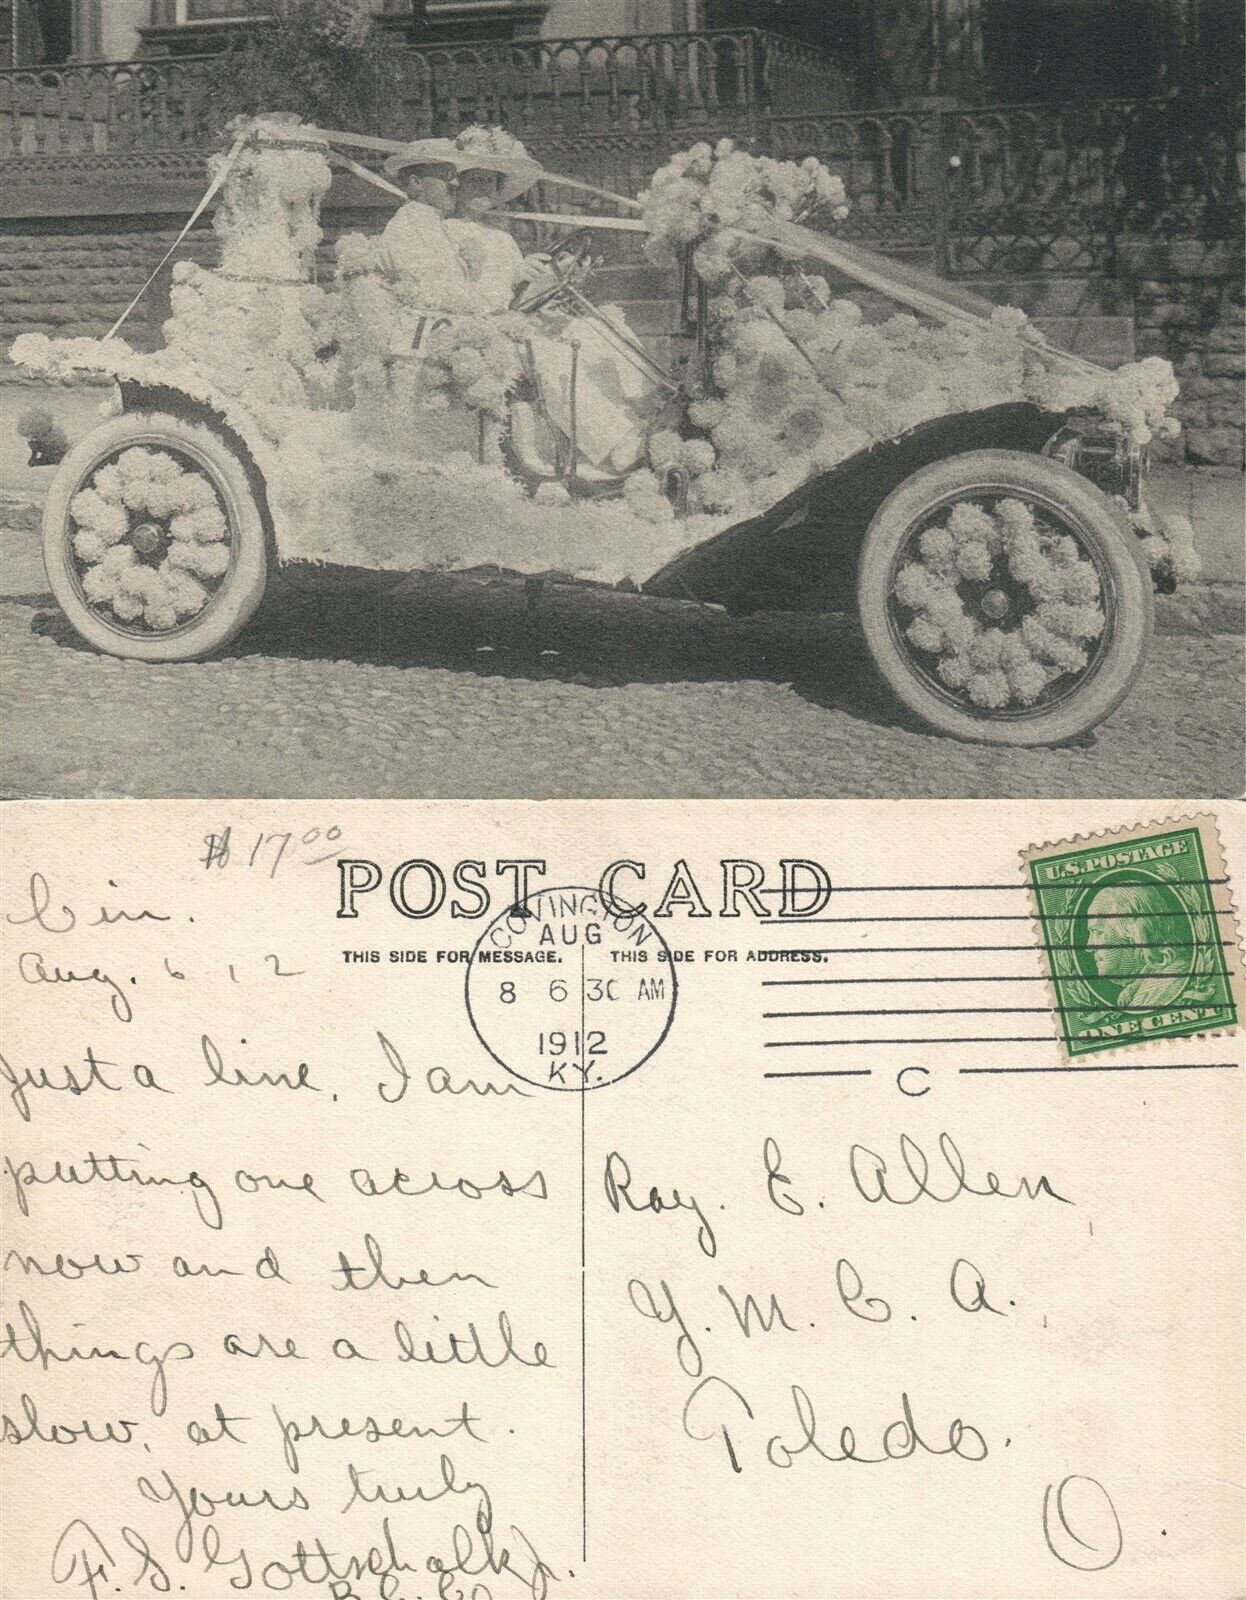 10
$17.00
POST CARD
THIS SIDE FOR MESSAGE. THIS SIDE FOR ADDRESS.
COVINGTON
AUG
8 6 30 AM
1912
KY.
C
U.S. POSTAGE
ONE CENT
Cin.
Aug. 6, 12
Just a line. I am
putting one across
now and then
things are a little
slow, at present.
Yours truly
F. S. Gottschalk Jr.
Ray. E. Allen,
Y. M. C. A.,
Toledo.
O.